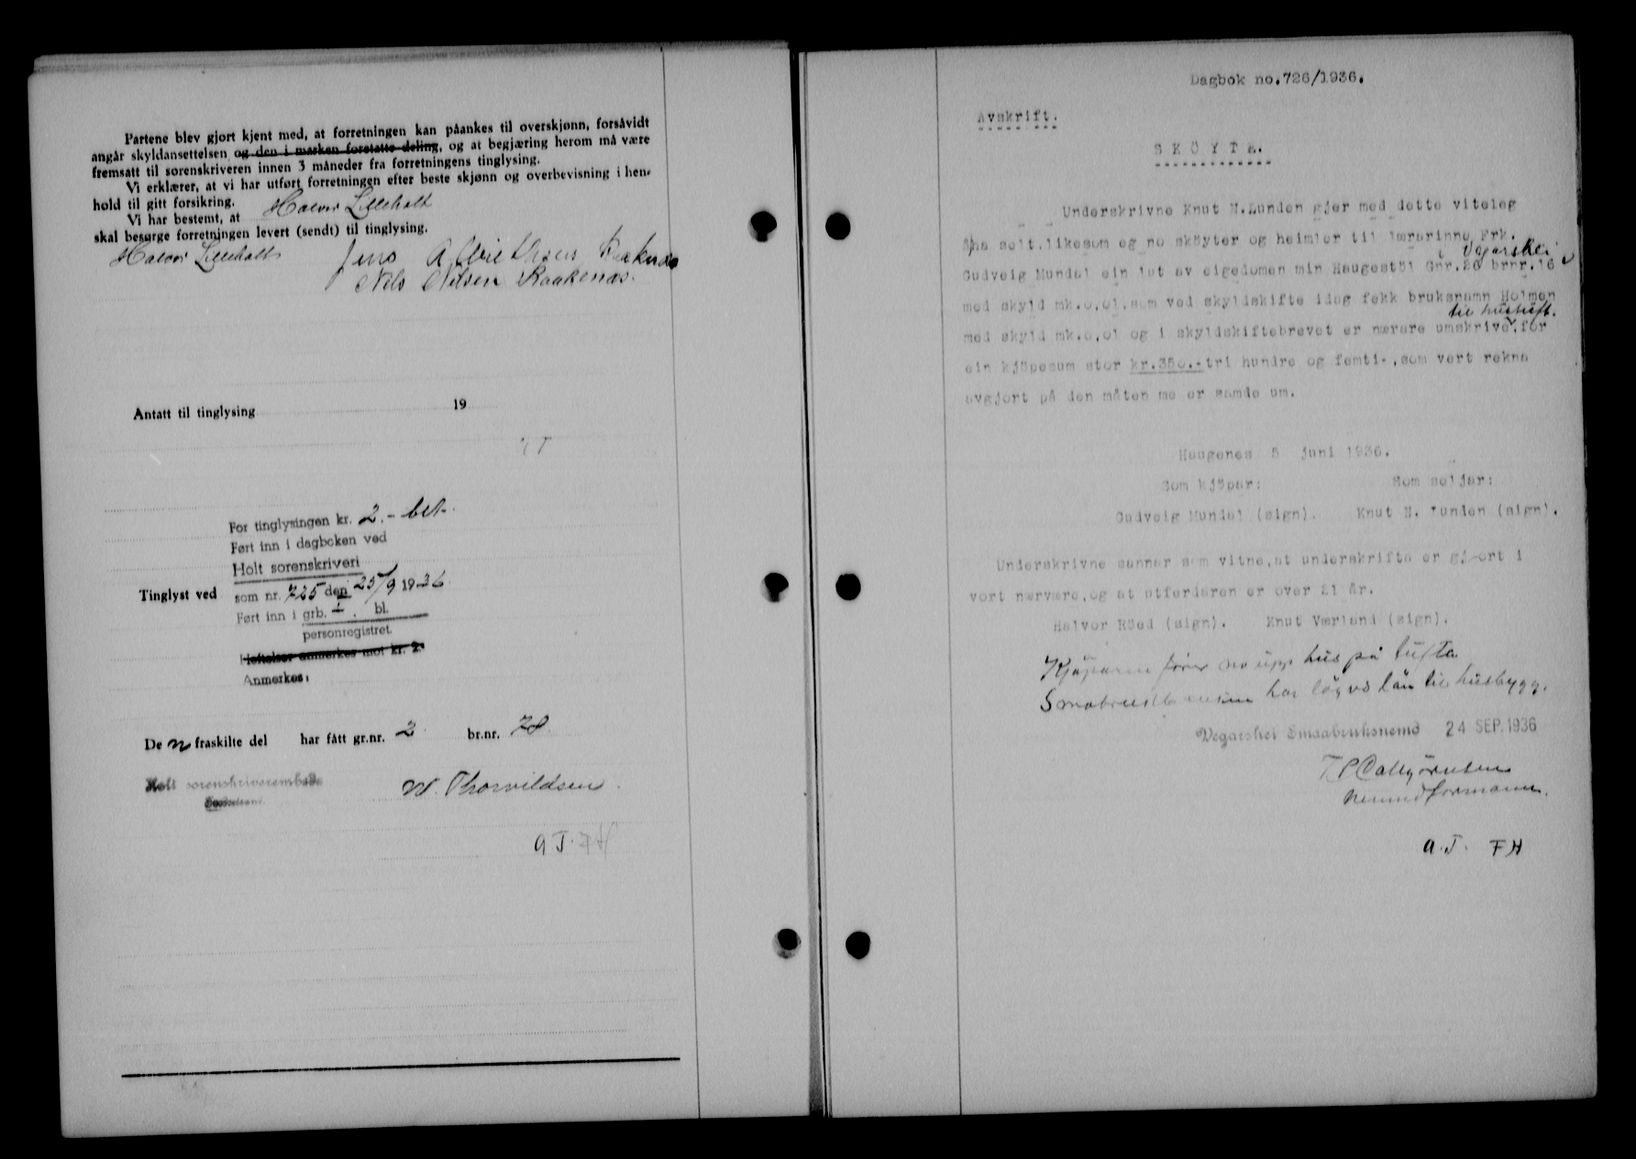 Partene blev gjort kjent med, at forretningen kan påankes til overskjønn, forsåvidt
angår skyldansettelsen og den i marken foretatte deling, og at begjæring herom må være
fremsatt til sorenskriveren innen 3 måneder fra forretningens tinglysing.
Vi erklærer, at vi har utført forretningen efter beste skjønn og overbevisning i hen-
hold til gitt forsikring.
Vi har bestemt, at Halvor Lilleholt
skal besørge forretningen levert (sendt) til tinglysing.
Halvor Lilleholt Jens
Nels Nilsen Raakenæs.
Antatt til tinglysing 19
For tinglysingen kr. 2.- bet.
Ført inn i dagboken ved
Holt sorenskriveri
Tinglyst ved som nr. 725 den 25/9 1936
Ført inn i grb. bl.
personregistret
Heftelser anmerkes mot kr. 2.
Anmerkes:
De n fraskilte del har fått gr.nr. 2 br.nr. 78
Holt sorenskriverembede
W. Thorvildsen.
a J. FH
Dagbok no.726/1936.
Avskrift.
SKÖYTE.
Underskrivne Knut N.Lunden gjer med dette viteleg
å ha selt.likesom eg no sköyter og heimler til lærarinne Frk.
i Vegårshei
Gudveig Mundal ein lut av eigedomen min Haugestöl Gnr.20 brnr.16
med skyld mk.o,o1,som ved skyldskifte idag fekk bruksnamn Holmen
til hustuft.
med skyld mk.o,o1 og i skyldskiftebrevet er nærare umskrive,for
ein kjöpesum stor kr.350.-tri hundre og femti-,som vert rekna
uvgjort på den måten me er samde um.
Haugenes 5 juni 1936.
Som kjöpar: Som seljar:
Gudveig Mundal (sign). Knut N. Lunden (sign).
Underskrivne sannar som vitne,at underskrifta er gjort i
vort nærvære,og at utferdaren er over 21 år.
Halvor Röed (sign). Knut Værland (sign).
Kjøparen fører no upp hus på tufta
Smabruk har løyvd lån til husbygg.
Vegarshei Smaabruksnemd 24 SEP. 1936
nemndformann.
a. J. FH